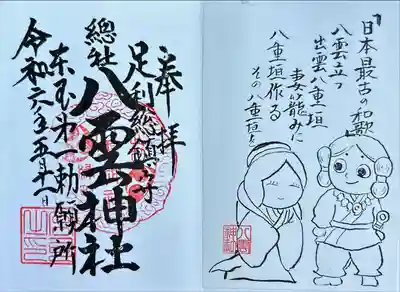 日本最古の和歌
八雲立つ
出雲八重垣
妻籠みに
八重垣作る
その八重垣を
八雲神社
奉拝
足利総鎮守
總社
八雲神社
勅願所
令和六年五月